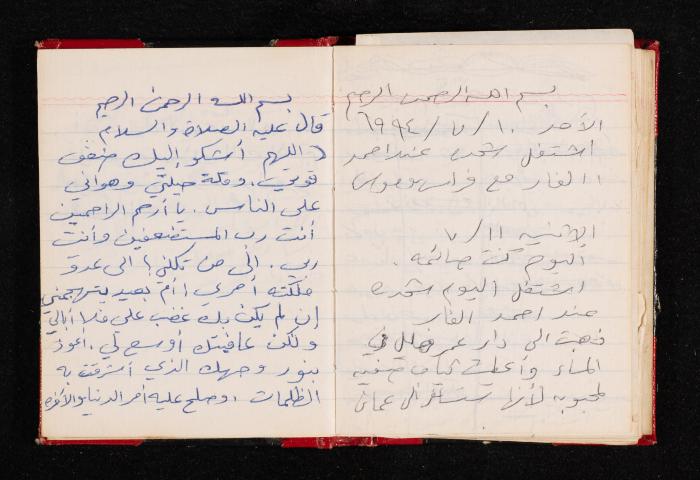 بسم الله الرحمن الرحيم
الأحد ١٠ / ٧ / ١٩٩٤
اشتغل عند احمد
الفار مع فراس موسى
الاثنين ١١ / ٧
اليوم كنت صائمه .
اشتغل اليوم
عند احمد الفار
ذهبت الى دار عمر في
المساء وأعطت كتاب
لأنها ستسافر الى عمان
بسم الله الرحمن الرحيم
قال عليه الصلاة والسلام
( اللهم أشكو إليك ضعف
قوتي ، وقلة حيلتي وهواني
على الناس . يا أرحم الراحمين
أنت رب المستضعفين وأنت
ربي . الى من تكلني ؟ الى عدو
ملكته أمري ؟ أم بعيد يتجهمني
إن لم يكن بك غضب علي فلا أبالي
ولكن عافيتك أوسع لي . أعوذ
بنور وجهك الذي أشرقت به
الظلمات ، وصلح عليه أمر الدنيا والآخره